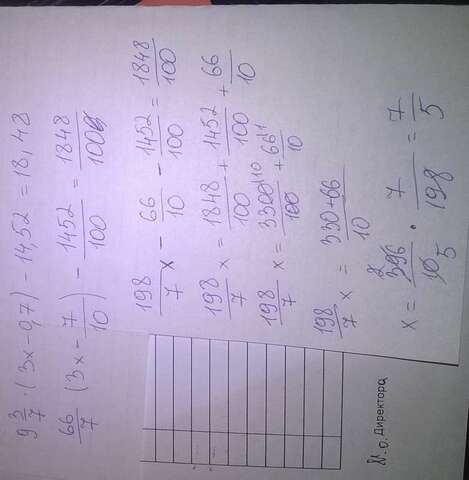 9 3/7 · (3x - 0,7) - 14,52 = 18,48
66/7 (3x - 7/10) - 1452/100 = 1848/100
198/7 x - 66/10 - 1452/100 = 1848/100
198/7 x = 1848/100 + 1452/100 + 66/10
198/7 x = 3300/100 + 66/10
198/7 x = 330+66/10
И.о. Директора
x = 396/10 · 7/198 = 7/5